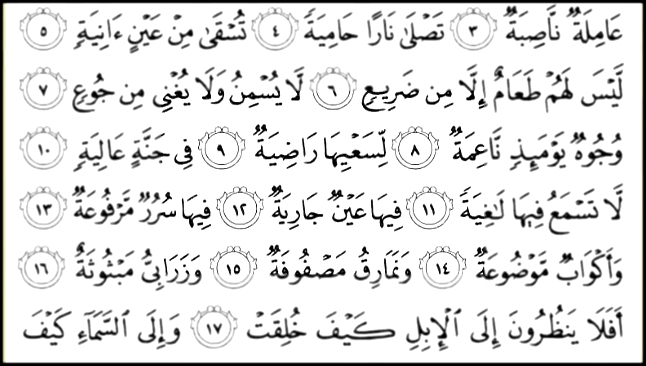 عَامِلَةٞ نَّاصِبَةٞ ٣ تَصۡلَىٰ نَارًا حَامِيَةٗ ٤ تُسۡقَىٰ مِنۡ عَيۡنٍ ءَانِيَةٖ ٥
لَّيۡسَ لَهُمۡ طَعَامٌ إِلَّا مِن ضَرِيعٖ ٦ لَّا يُسۡمِنُ وَلَا يُغۡنِي مِن جُوعٖ ٧
وُجُوهٞ يَوۡمَئِذٖ نَّاعِمَةٞ ٨ لِّسَعۡيِهَا رَاضِيَةٞ ٩ فِي جَنَّةٍ عَالِيَةٖ ١٠
لَّا تَسۡمَعُ فِيهَا لَٰغِيَةٗ ١١ فِيهَا عَيۡنٞ جَارِيَةٞ ١٢ فِيهَا سُرُرٞ مَّرۡفُوعَةٞ ١٣
وَأَكۡوَابٞ مَّوۡضُوعَةٞ ١٤ وَنَمَارِقُ مَصۡفُوفَةٞ ١٥ وَزَرَابِيُّ مَبۡثُوثَةٌ ١٦
أَفَلَا يَنظُرُونَ إِلَى ٱلۡإِبِلِ كَيۡفَ خُلِقَتۡ ١٧ وَإِلَى ٱلسَّمَآءِ كَيۡفَ